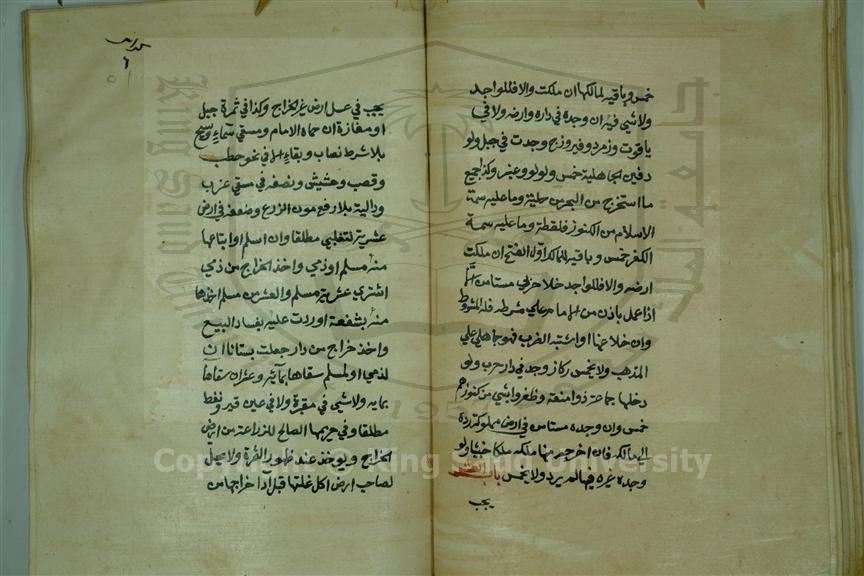 خمس وباقيه لمالكها ان ملكت والا فللواجد
ولا شي فيه ان وجده في داره وارضه ولا في
ياقوت وزمرد وفيروزج وجدت في جبل ولو
دفين الجاهلية خمس ولولو وعنبر وكذا جميع
ما استخرج من البحر من حلية وما عليه سمة
الاسلام من الكنوز فلقطة وما عليه سمة
الكفر خمس وباقيه للمالك اول الفتح ان ملكت
ارضه والا فللواجد خلا حربي مستامن الا
اذا عمل باذن من الامام على شرطه فله المشروط
وان خلا عنها او اشتبه الضرب فهو جاهلي على
المذهب ولا يخمس ركاز وجد في دار حرب ولو
دخلها جماعة ذو امنعة وظفروا بشي من كنوزهم
خمس وان وجده مستامن في ارض مملوكة رده
الى مالكه فان اخرجه منها ملكه ملكا خبيثا ولو
وجده غيره فيها لم يرد ولا يخمس باب العشر
يجب
يجب في عسل ارض غير الخراج وكذا في ثمرة جبل
او مفازة ان حماه الامام ومسقي سماء وسيح
بلا شرط نصاب وبقاء الا في نحو حطب
وقصب وحشيش ونصفه في مسقي غرب
ودالية بلا رفع مون الزرع وضعفه في ارض
عشرية لتغلبي مطلقا وان اسلم او ابتاعها
منه مسلم او ذمي واخذ الخراج من ذمي
اشتري عشرية مسلم والعشر من مسلم اخذها
منه بشفعة او ردت عليه بفساد البيع
واخذ خراج من دار جعلت بستانا ان
لذمي او لمسلم سقاها بمائه وعشر ان سقاها
بمايه ولا شي في مقبرة ولا في عين قير ونفط
مطلقا وفي حريمها الصالح للزراعة من ارض
الخراج ويوخذ عند ظهور الثمرة ولا يحل
لصاحب ارض اكل غلتها قبل اداء خراجها من
Copyright © King Saud University
جامعة الملك
King Saud
1957